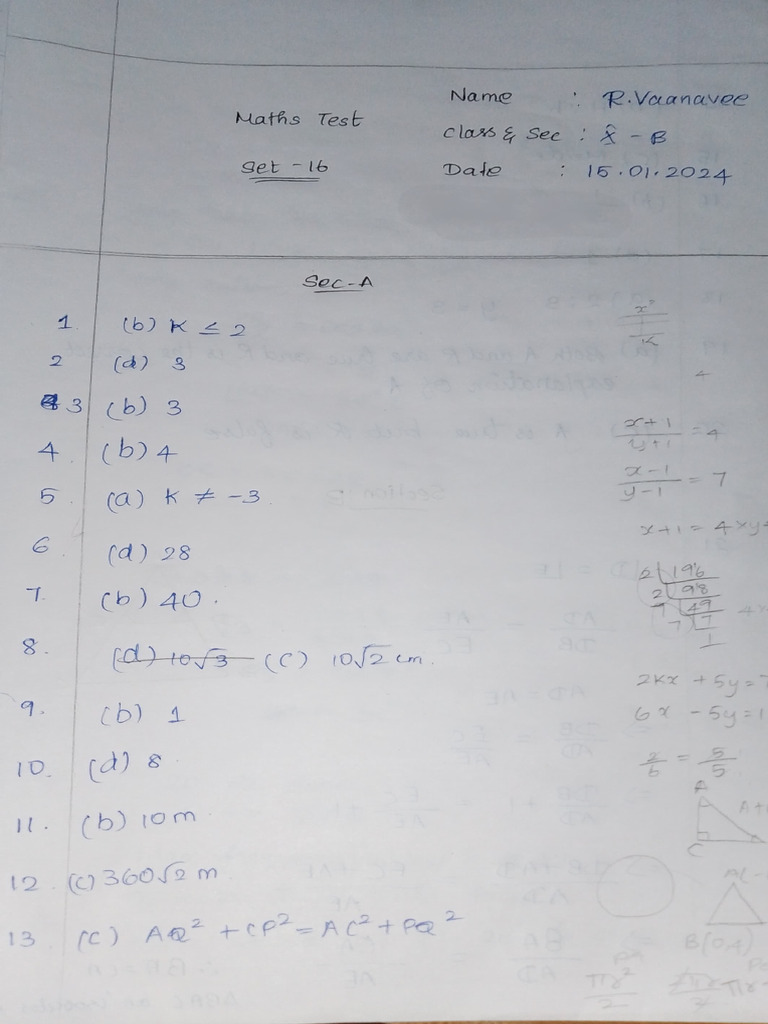 Name : R.Vaanavee
Maths Test
Class & Sec : X - B
Set - 16
Date : 15.01.2024
Sec-A
1. (b) K ≤ 2
2 (d) 3
3 (b) 3
4. (b) 4
5. (a) K ≠ -3
6. (d) 28
7. (b) 40.
8. (d) 10√3 (C) 10√2 cm.
9. (b) 1
10. (d) 8
11. (b) 10m
12. (c) 360√2 m
13. (C) AQ² + CP² = AC² + PQ²
4
x+1/y+1 = 4
x-1/y-1 = 7
x+1 = 4xy+
2 196
2 98
7 49
7 7
1
2Kx + 5y = 7
6x - 5y = 1
2/6 = 5/5
A
C
B(0,4)
πr²/2